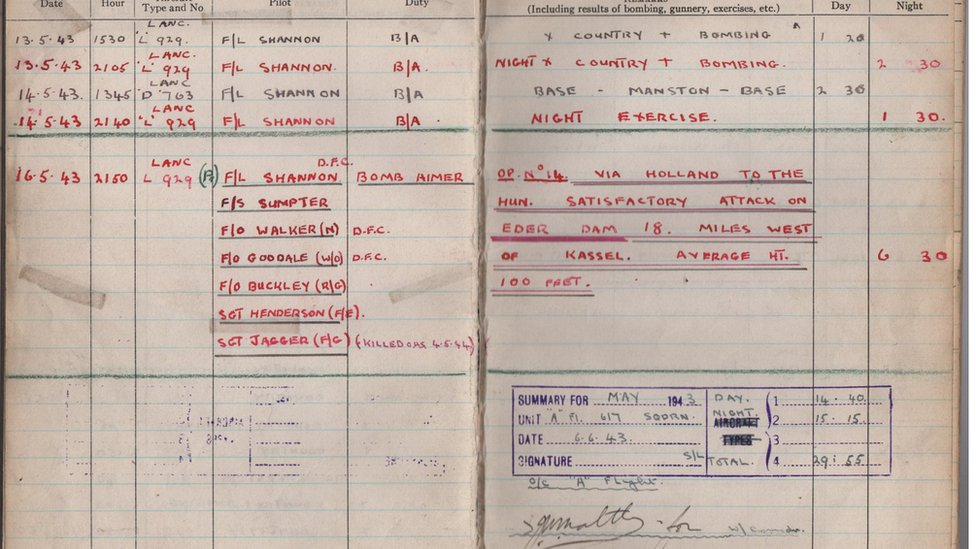 Date Hour Type and No Pilot Duty (Including results of bombing, gunnery, exercises, etc.) Day Night
LANC.
13.5.43 1530 'L' 929. F/L SHANNON B/A X COUNTRY + BOMBING 1 20
LANC.
13.5.43 2105 'L' 929 F/L SHANNON. B/A. NIGHT X COUNTRY + BOMBING. 2 30
LANC
14.5.43. 1345 'D' 763 F/L SHANNON B/A BASE - MANSTON - BASE 2 30
LANC
14.5.43 2140 'L' 929 F/L SHANNON B/A. NIGHT EXERCISE. 1 30.
LANC D.F.C.
16.5.43 2150 L 929 F/L SHANNON BOMB AIMER OP. No 14. VIA HOLLAND TO THE
F/S SUMPTER HUN. SATISFACTORY ATTACK ON
F/O WALKER (N) D.F.C. EDER DAM 18. MILES WEST
F/O GOODALE (W/O) D.F.C. OF KASSEL. AVERAGE HT. 6 30
F/O BUCKLEY (R/G) 100 FEET.
SGT HENDERSON (F/E).
SGT JAGGER (F/G) (KILLED 4.5.44)
SUMMARY FOR MAY 1943 DAY. 1 14.40.
UNIT "A" Fl. 617 SQDRN. NIGHT. AIRCRAFT 2 15.15.
DATE 6.6.43. TYPES 3
SIGNATURE S/L TOTAL. 4 29:55
o/c "A" Flight.
for